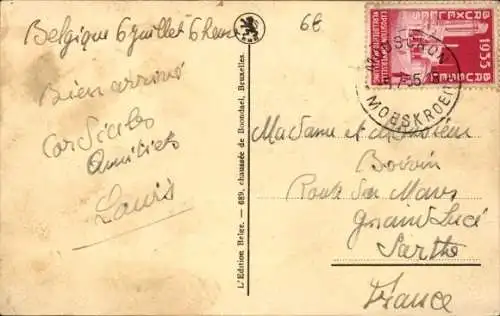 Belgique 6 juillet 6 heures
Bien arrivé
Cordiales
Amitiés
Louis
L'Edition Belge. — 689, chaussée de Boondael, Bruxelles.
6€
BRUXELLES
1935
BRUSSEL
MOUSCRON
MOESKROEN
Madame et Monsieur
Boivin
Route du Mans
Grand Lucé
Sarthe
France